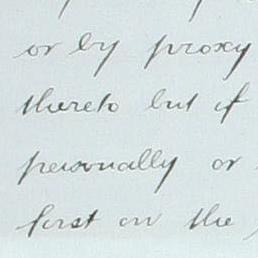 or by proxy
thereto but if
personally or
first on the